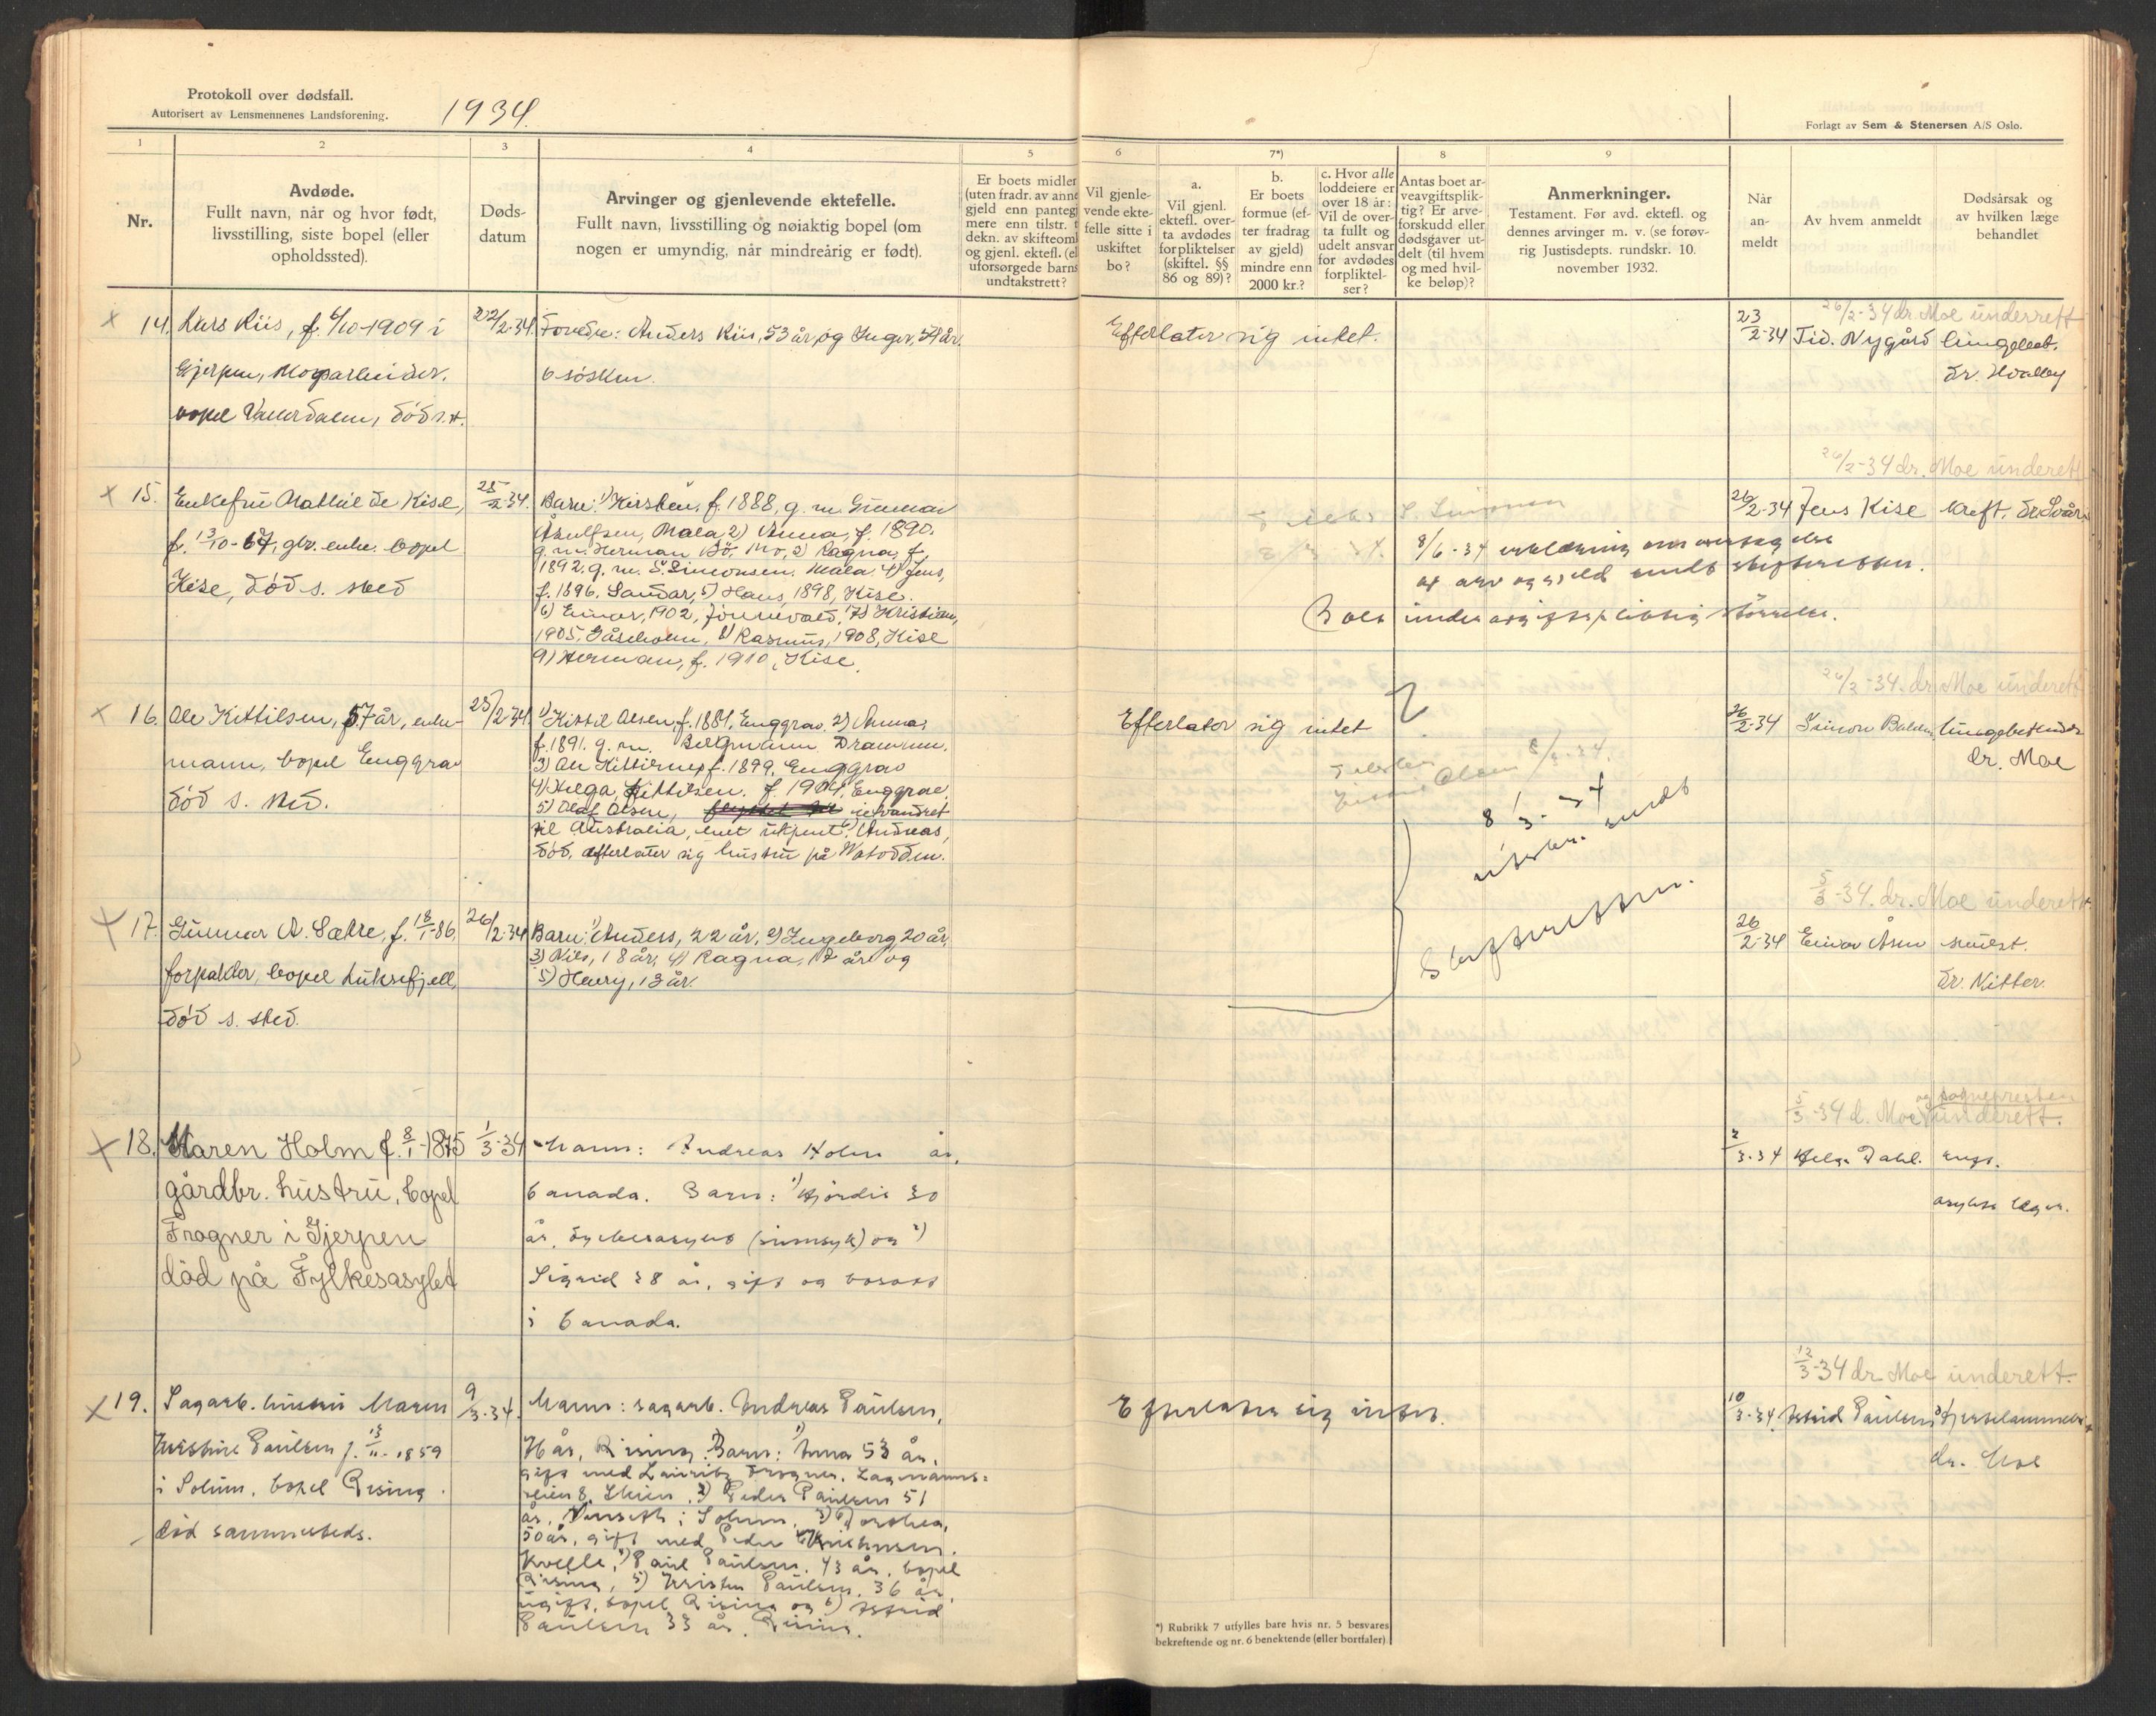 Protokoll over dødsfall.
Autorisert av Lensmennenes Landsforening.
1934.
Forlagt av Sem & Stenersen A/S Oslo.
1
2
3
4
5
6
7*)
8
9
Nr.
Avdøde.
Fullt navn, når og hvor født,
livsstilling, siste bopel (eller
opholdssted).
Døds-
datum
Arvinger og gjenlevende ektefelle.
Fullt navn, livsstilling og nøiaktig bopel (om
nogen er umyndig, når mindreårig er født).
Er boets midler
(uten fradr. av anne
gjeld enn pantegj
mere enn tilstr. t
dekn. av skifteoml
og gjenl. ektefl. (el
uforsørgede barns
undtakstrett?
Vil gjenle-
vende ekte-
felle sitte i
uskiftet
bo?
a.
Vil gjenl.
ektefl. over-
ta avdødes
forpliktelser
(skiftel. §§
86 og 89)?
b.
Er boets
formue (ef-
ter fradrag
av gjeld)
mindre enn
2000 kr.?
c. Hvor alle
loddeiere er
over 18 år:
Vil de over-
ta fullt og
udelt ansvar
for avdødes
forpliktel-
ser?
Antas boet ar-
veavgiftsplik-
tig? Er arve-
forskudd eller
dødsgaver ut-
delt (til hvem
og med hvil-
ke beløp)?
Anmerkninger.
Testament. Før avd. ektefl. og
dennes arvinger m. v. (se forøv-
rig Justisdepts. rundskr. 10.
november 1932.
Når
an-
meldt
Av hvem anmeldt
Dødsårsak og
av hvilken læge
behandlet
26/2-34 dr. Moe underrett
x 14. Lars Riis, f. 6/10-1909 i
Gjerpen,
bopel død s.st.
22/2-34.
Foreldre: Anders Riis, 53 år, og Inger, 54 år.
6 søsken.
Efterlater sig intet.
23/2-34
Tid. Nygård
lungebet.
dr. Hvalby
26/2-34 dr. Moe underett
x 15. Enkefru Mathilde Kise,
f. 13/10-67, gbr. enke. bopel
Kise, død s. sted
25/2-34.
Barn: 1) Kirsten, f. 1888, g. m. Gunnar
Åsulfsen, Mæla, 2) Anna, f. 1890.
g. m. Herman Bö, Mo, 3) Ragna, f.
1892, g. m. S. Simonsen. Mæla. 4) Jens,
f. 1896. Sandar, 5) Hans, 1898, Kise.
6) Einar, 1902, Jönnevald, 7) Kristian,
1905, Gåseholm, 8) Rasmus, 1908, Kise
9) Herman, f. 1910, Kise.
S. Simonsen
8/6-34 erklæring om overtagelse
av arv og gjeld sendt skifteretten.
Boet under avgiftspliktig størrelse.
26/2-34
Jens Kise
kreft. dr.
26/2-34. dr. Moe underett
x 16. Ole Kittilsen, 57 år, enke-
mann, bopel Enggrav
død s. sted.
25/2-34
1) Kittil Olsen, f. 1881, Enggrav. 2) Anna,
f. 1891. g. m. Bergmann Drammen.
3) Ole Kittilsen, f. 1899, Enggrav
4) Helga Kittilsen. f. 1904, Enggrav.
5) Olaf Olsen, utvandret
til Australia, levet ukjent. 6) Andreas,
død, efterlater sig hustru på Notodden.
Efterlater sig intet
Olsen 8/3-34.
8/3-34
utskr. sendt
Skifteretten.
26/2-34
Simon
lungebetendelse
dr. Moe
5/3-34. dr. Moe underett.
x 17. Gunnar A. Sætre, f. 18/1-86,
forpakter, bopel Luksefjell,
død s. sted.
26/2-34
Barn: 1) Anders, 22 år, 2) Ingeborg, 20 år,
3) Nils, 18 år, 4) Ragna, 17 år og
5) Harry, 13 år.
26/2-34
Einar Åsen
dr. Ritter.
og sognepresten
5/3-34 d. Moe underett.
x 18. Maren Holm f. 8/1-1875
gårdbr. hustru, bopel
Frogner i Gjerpen
død på Fylkesasylet
1/3-34
Mann: Andreas Holm år,
Canada. Barn: 1) Hjørdis 30
år, Fylkesasylet (sinnsyk) og 2)
Sigrid 28 år, gift og bosatt
i Canada.
2/3-34
Helge Dahl.
asylets læger.
12/3-34 dr Moe underett.
x 19. Sagarb. hustru Maren
Kristine Paulsen f. 13/11-1859
i Solum, bopel Rising
død sammesteds.
9/3-34.
Mann: sagarb. Andreas Paulsen,
76 år, Rising. Barn: 1) Anna 53 år,
gift med Lauritz Frogner. Lagmanns-
veien 8, Skien, 2) Peder Paulsen 51
år, i Solum, 3) Dorthea,
50 år, gift med Peder
Kvelle, 4) Paul Paulsen. 43 år, bopel
Rising, 5) Kristen Paulsen. 36 år
ugift, bopel Rising og 6) Astrid
Paulsen 33 år, Rising.
Efterlater sig intet.
10/3-34
Astrid Paulsen
Hjertelammelse
dr. Moe
*) Rubrikk 7 utfylles bare hvis nr. 5 besvares
bekreftende og nr. 6 benektende (eller bortfaler)